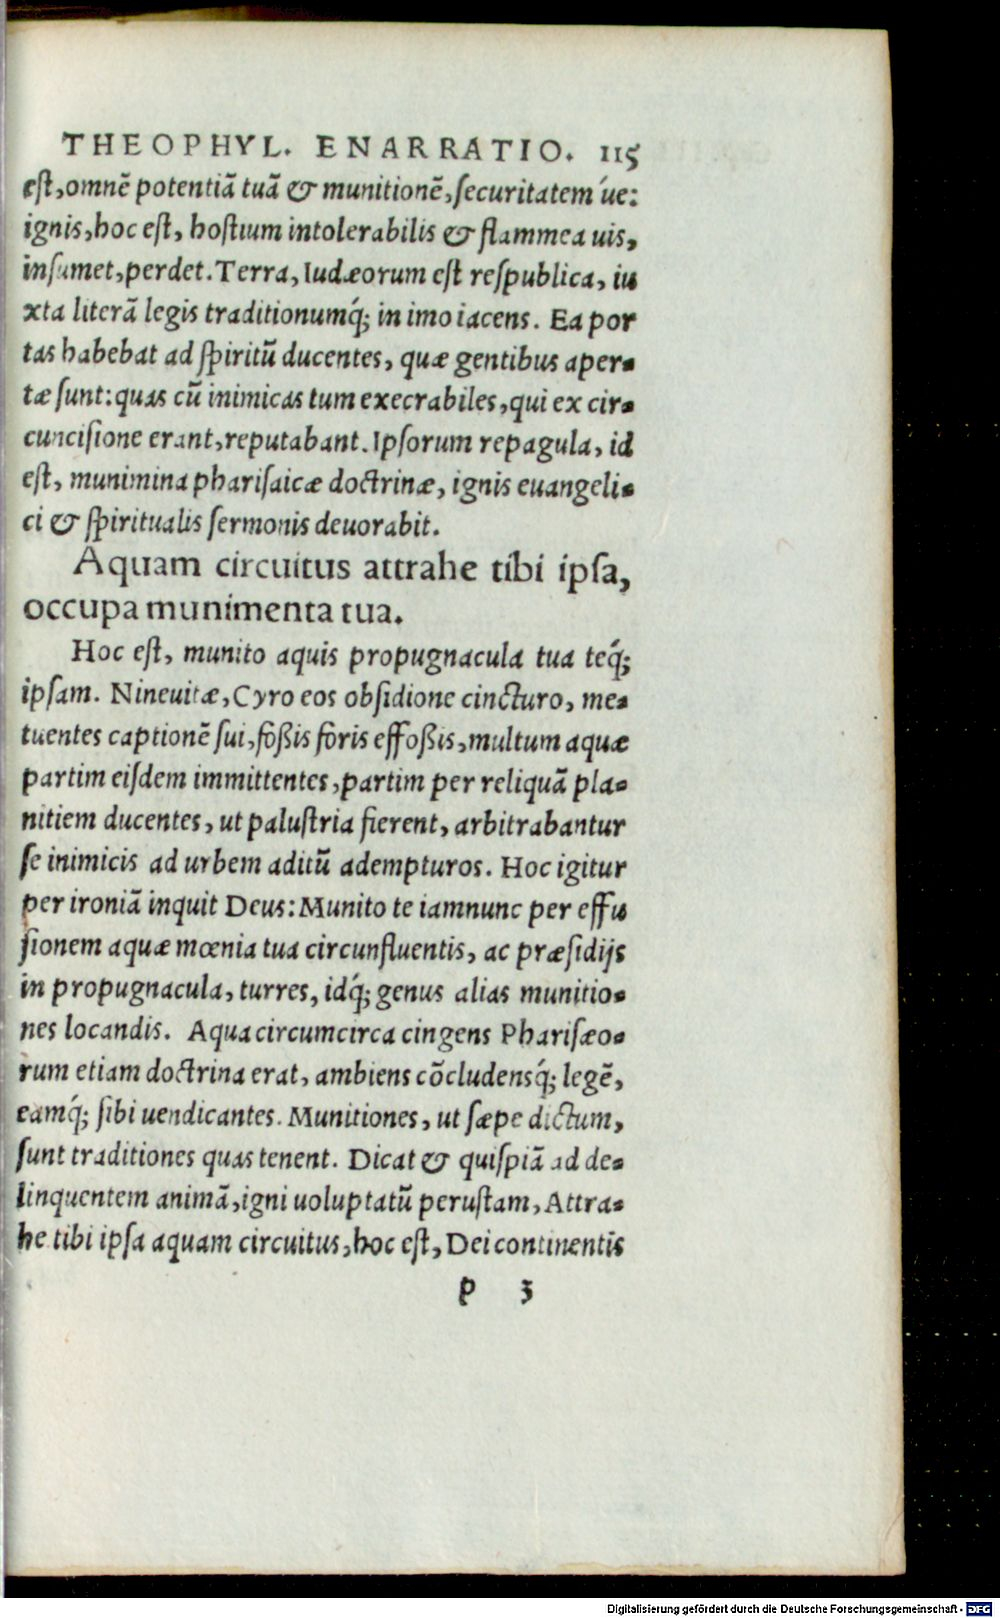 THEOPHYL. ENARRATIO. 115
est, omnē potentiā tuā & munitionē, securitatem úe:
ignis, hoc est, hostium intolerabilis & flammea uis,
insumet, perdet. Terra, Iudæorum est respublica, iu
xta literā legis traditionumq́; in imo iacens. Ea por
tas habebat ad spiritū ducentes, quæ gentibus aper-
tæ sunt: quas cū inimicas tum execrabiles, qui ex cir-
cuncisione erant, reputabant. Ipsorum repagula, id
est, munimina pharisaicæ doctrinæ, ignis euangeli-
ci & spiritualis sermonis deuorabit.
Aquam circuitus attrahe tibi ipsa,
occupa munimenta tua.
Hoc est, munito aquis propugnacula tua teq́;
ipsam. Nineuitæ, Cyro eos obsidione cincturo, me-
tuentes captionē sui, foßis foris effoßis, multum aquæ
partim eisdem immittentes, partim per reliquā pla-
nitiem ducentes, ut palustria fierent, arbitrabantur
se inimicis ad urbem aditū adempturos. Hoc igitur
per ironiā inquit Deus: Munito te iamnunc per effu
sionem aquæ mœnia tua circunfluentis, ac præsidijs
in propugnacula, turres, idq́; genus alias munitio-
nes locandis. Aqua circumcirca cingens Pharisæo-
rum etiam doctrina erat, ambiens cōcludensq́; legē,
eamq́; sibi uendicantes. Munitiones, ut sæpe dictum,
sunt traditiones quas tenent. Dicat & quispiā ad de-
linquentem animā, igni uoluptatū perustam, Attra-
he tibi ipsa aquam circuitus, hoc est, Dei continentis
p 3
Digitalisierung gefördert durch die Deutsche Forschungsgemeinschaft - DFG